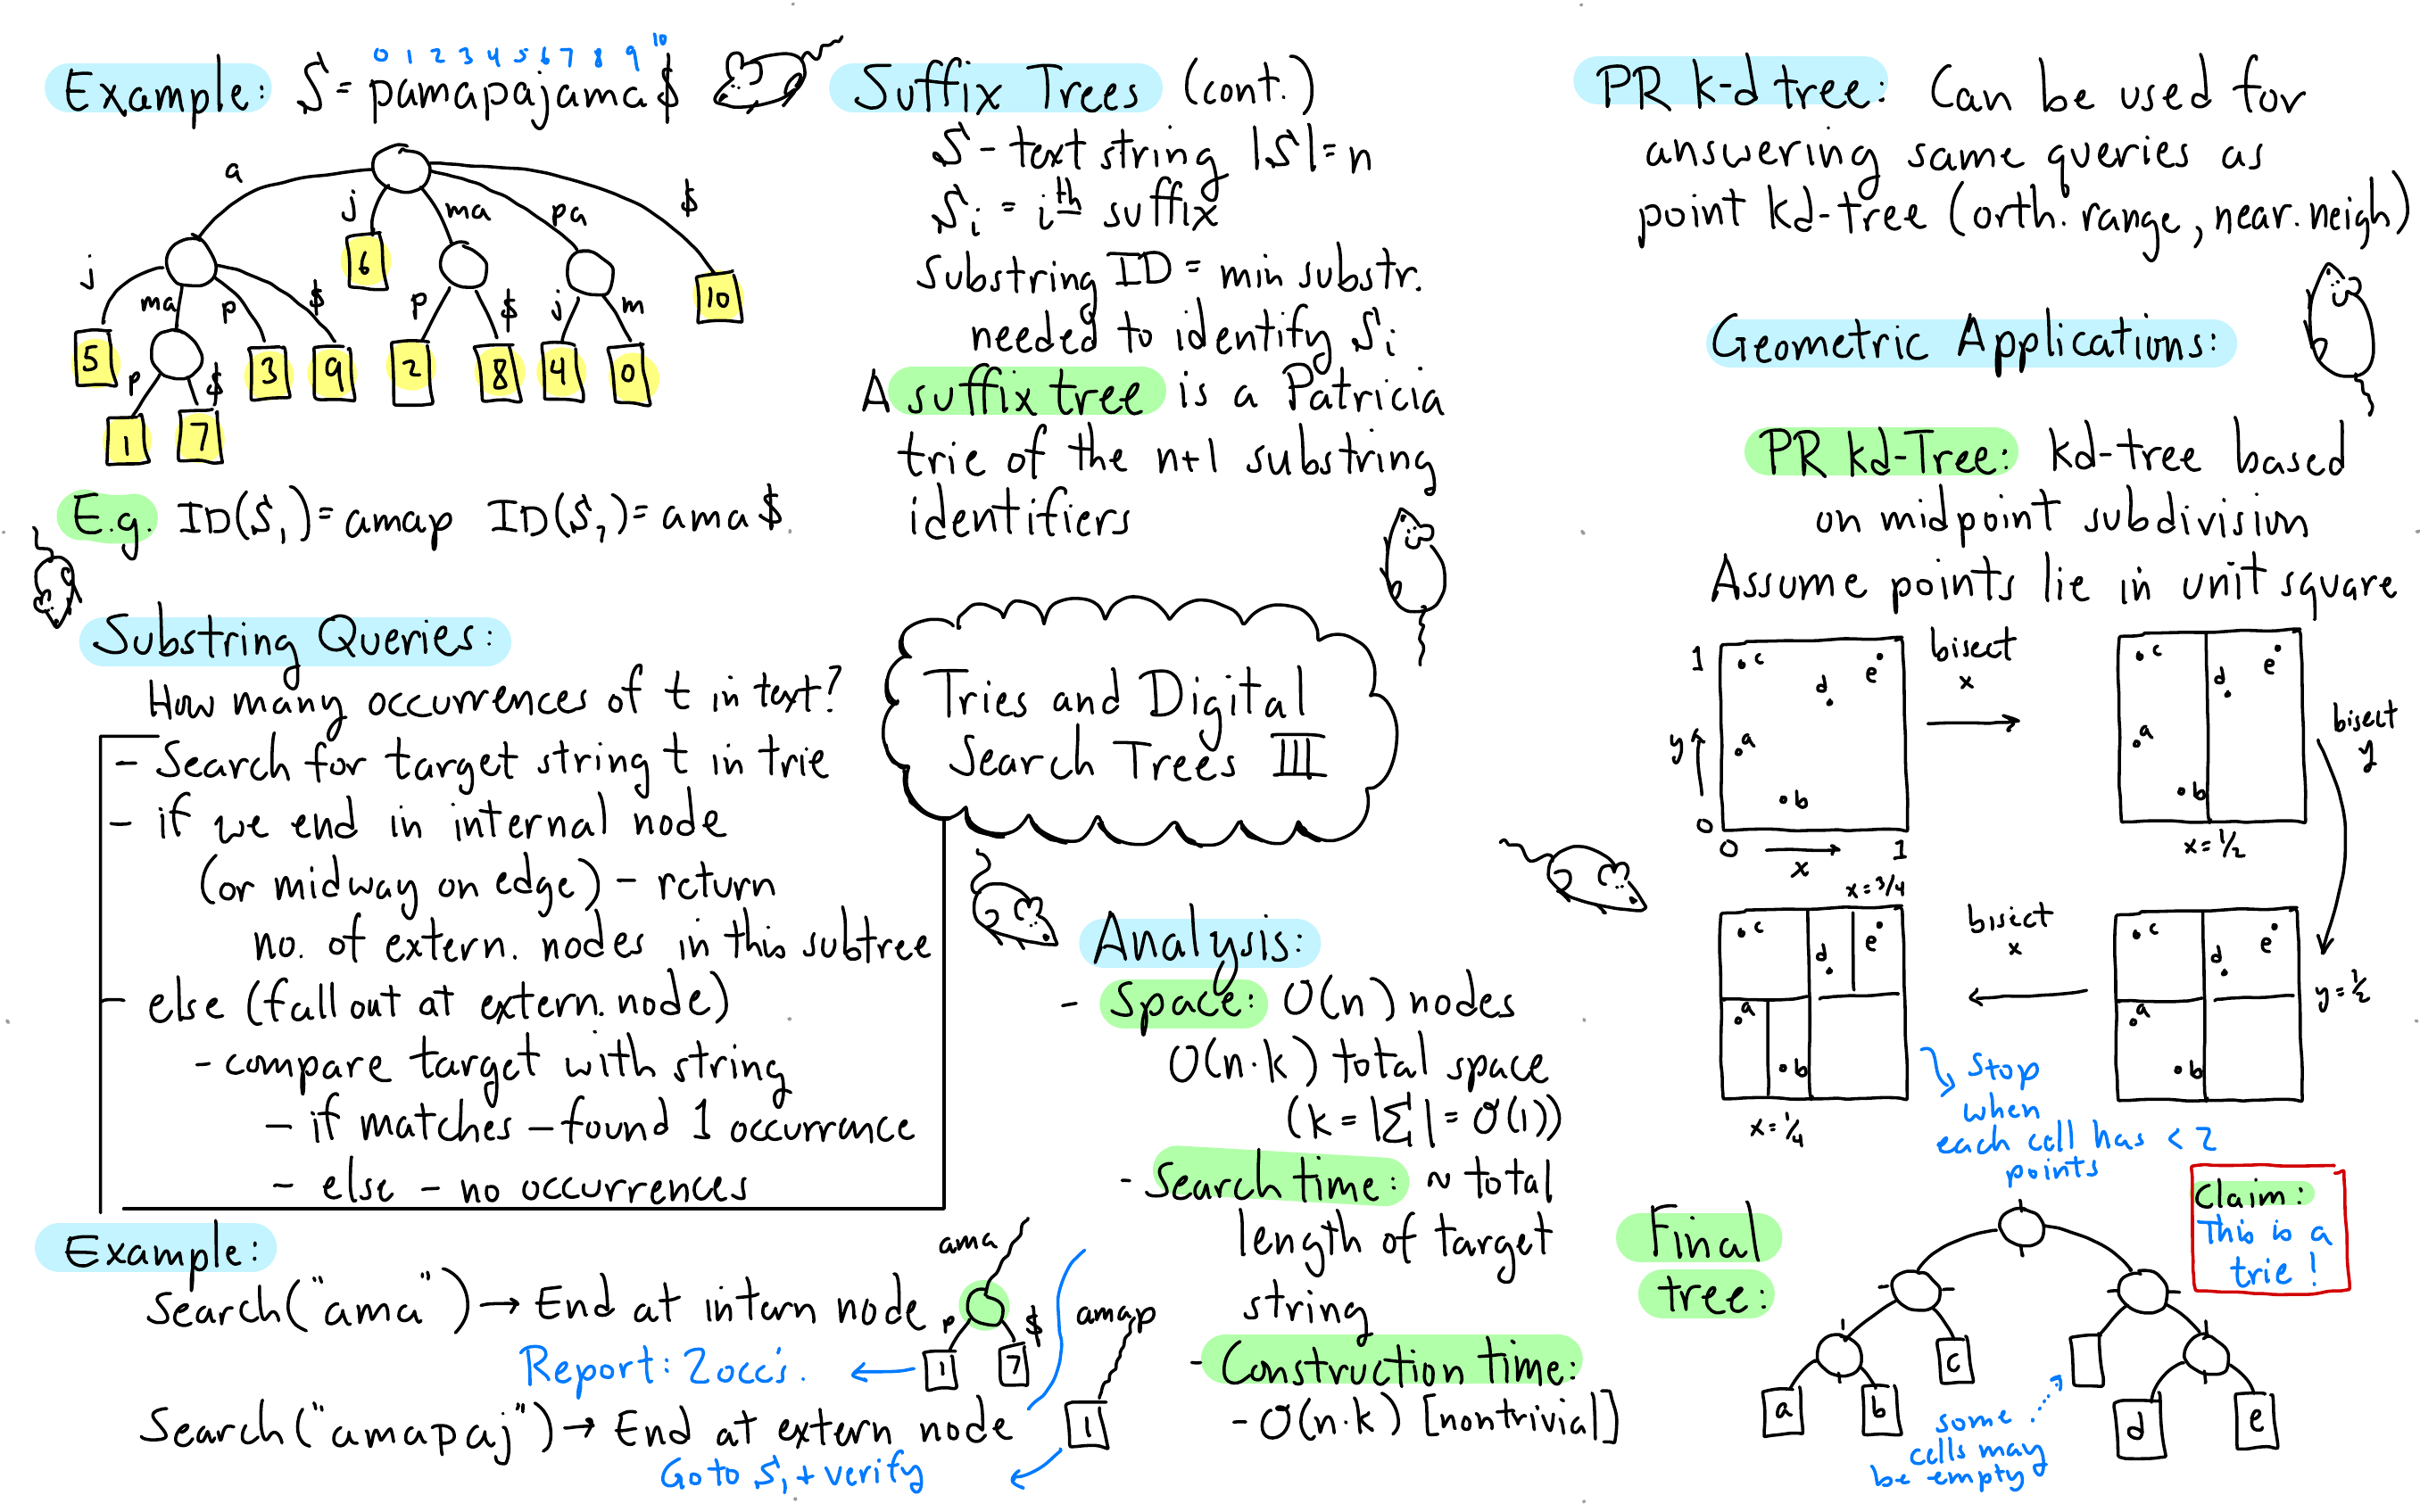 0 1 2 3 4 5 6 7 8 9 10
Example: S = pamapajama$
a
j
ma
pa
$
j
ma
p
$
6
p
$
j
m
10
5
p
$
3
9
2
8
4
0
1
7
E.g. ID(S₁)= amap ID(S₇)= ama$
Substring Queries:
How many occurrences of t in text?
- Search for target string t in trie
- if we end in internal node
(or midway on edge) - return
no. of extern. nodes in this subtree
- else (fall out at extern. node)
- compare target with string
- if matches - found 1 occurrance
- else - no occurrences
Example:
Search("ama") → End at intern node
Report: 2 occ's. ←
ama
p
$
1
7
Search("amapaj") → End at extern node
Go to S₁ + verify ←
amap
1
Suffix Trees (cont.)
S - text string |S| = n
Sᵢ = iᵗʰ suffix
Substring ID = min substr.
needed to identify Sᵢ
A suffix tree is a Patricia
trie of the n+1 substring
identifiers
Tries and Digital
Search Trees III
Analysis:
- Space: O(n) nodes
O(n·k) total space
(k = |Σ| = O(1))
- Search time: ~ total
length of target
string
- Construction time:
- O(n·k) [nontrivial]
PR k-d tree: Can be used for
answering same queries as
point kd-tree (orth. range, near. neigh)
Geometric Applications:
PR kd-Tree: kd-tree based
on midpoint subdivision
Assume points lie in unit square
1
c
d
e
y
a
b
0
0
x
1
bisect
x
→
c
d
e
a
b
x = 1/2
bisect
y
c
d
e
a
b
y = 1/2
bisect
x
←
x = 3/4
c
d
e
a
b
x = 1/4
Stop
when
each cell has < 2
points
Final
tree:
Claim:
This is a
trie!
c
a
b
d
e
some
cells may
be empty